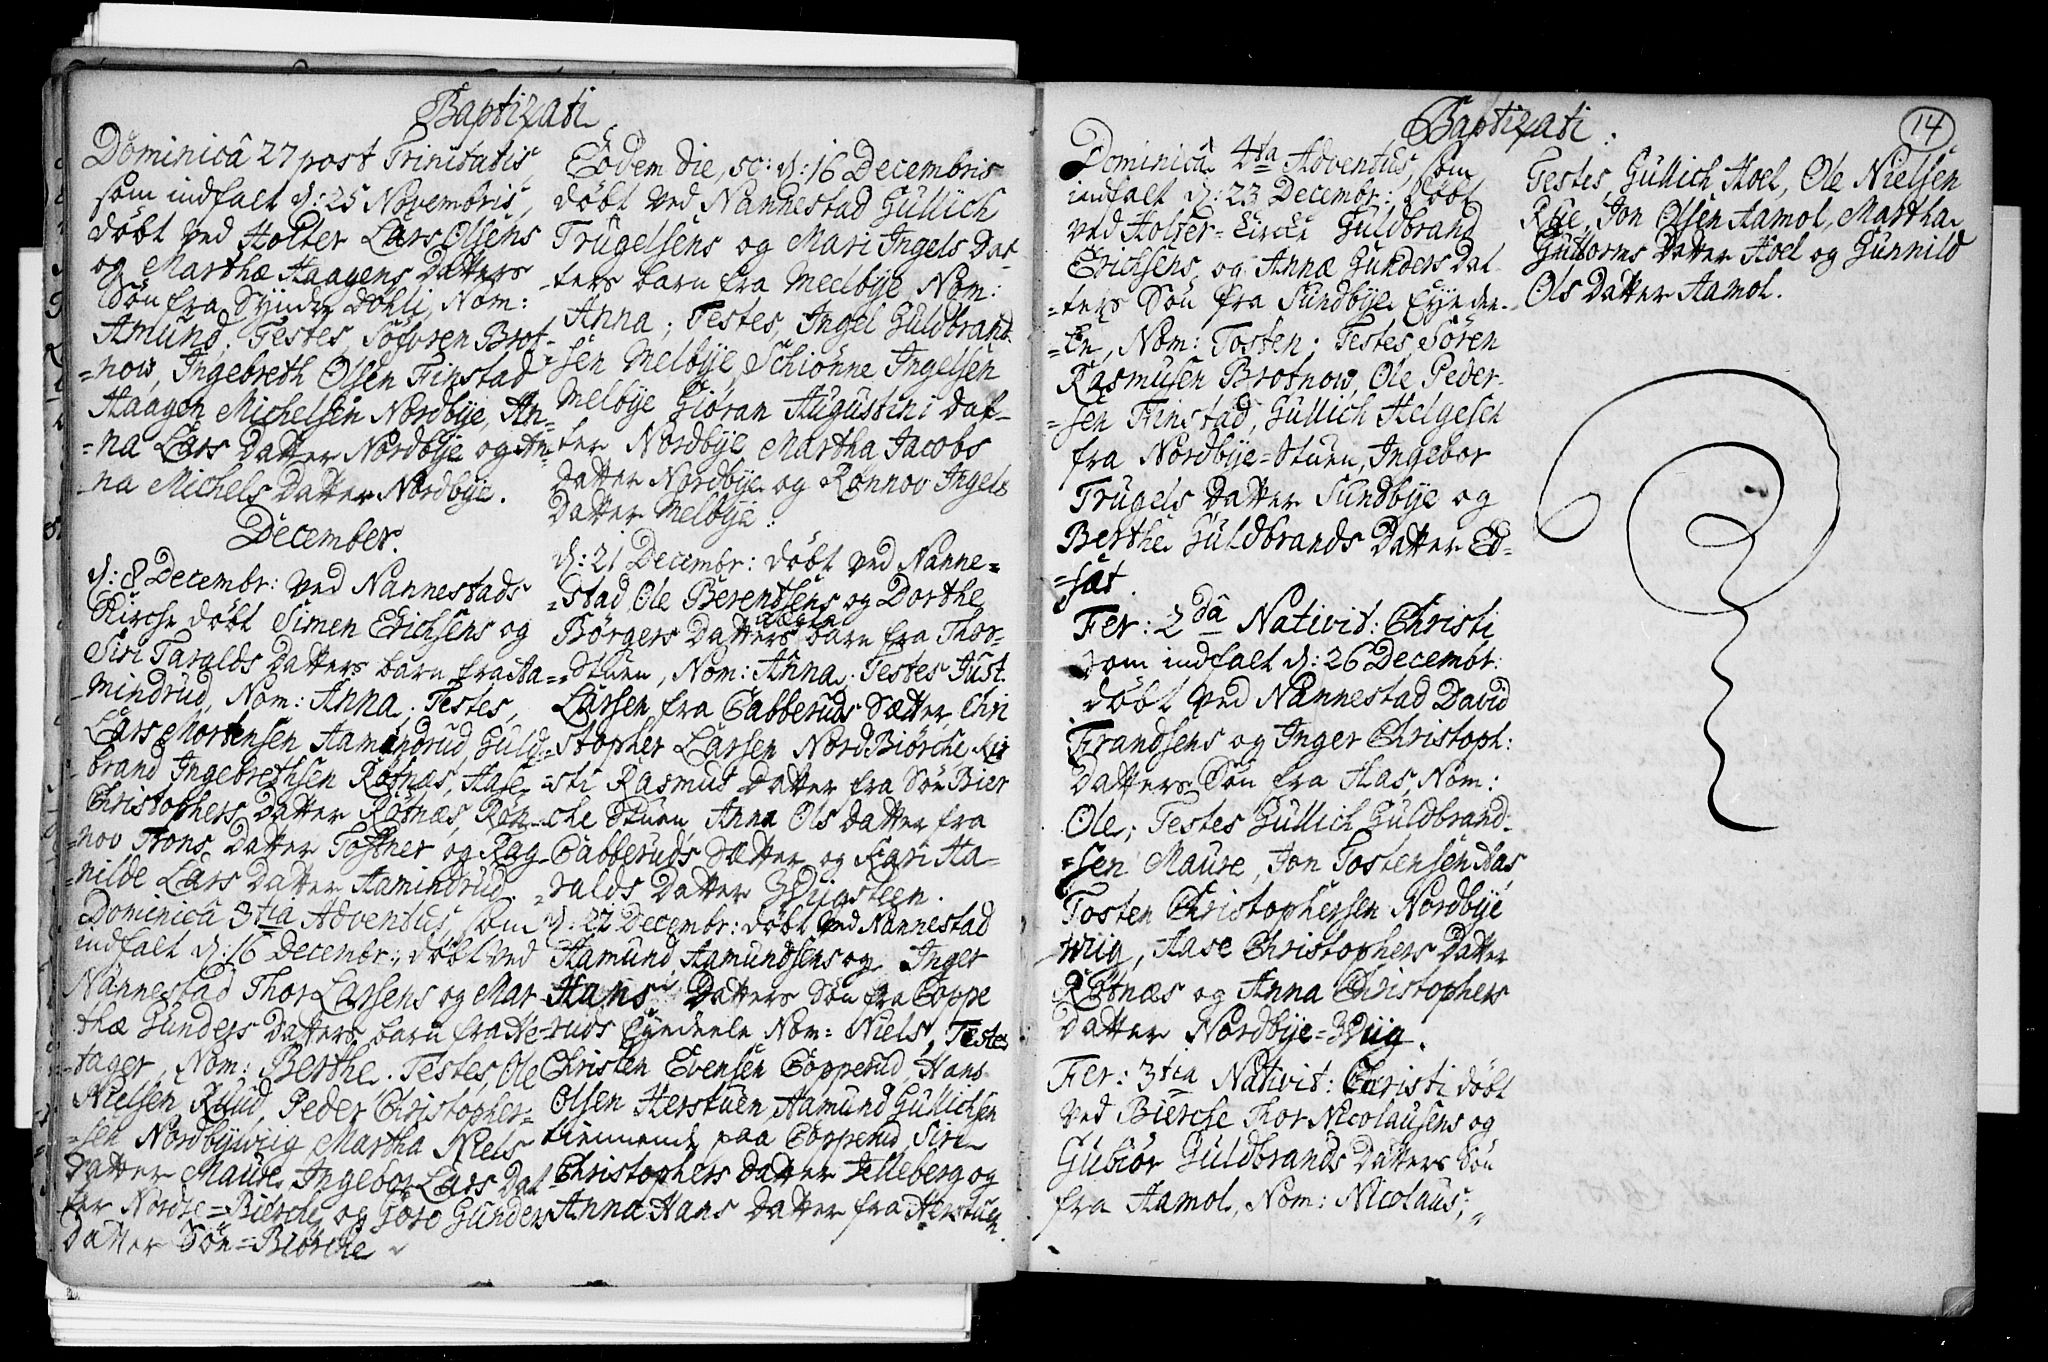 Baptizati
Dominicâ 27 post Trinitatis,
som indfalt d: 25 Novembris,
döbt ved Holter Lars Olsens
og Marthæ Haagens Datters
Sön fra Dohli, Nom:
Amund. Testes, Brot-
=now, Ingebreth Olsen Finstad
Haagen Michelsen Nordbÿe, An-
=na Lars Datter Nordbÿe og An-
=na Michels Datter Nordbÿe.
December.
d: 8 Decembr: ved Nannestads
Kirche döbt Simen Erichsens og
Siri Taralds Datters barn fra Aa-
mindrud, Nom: Anna. Testes,
Lars Mortensen Aamindrud, Guld-
brand Ingebrethsen Rötnæs, Aase
Christophers Datter Rötnæs, Rön-
=nov Datter og Rag-
=nilde Lars Datter Aamindrud.
Dominicâ 3tia Adventus, som
indfalt d: 16 Decembr: döbt ved
Nannestad Thor Larsens og Mar-
thæ Gunders Datters barn fra
=tager, Nom: Berthe. Testes, Ole
Nielsen Ruud, Peder Christopher-
=sen Nordbÿwiig Martha Niels
Datter Maure, Ingebor Lars Dat-
ter Nordre=Bierche og Göro Gunders
Datter Sön=Biörche
Eodem die, sc: d: 16 Decembris
döbt ved Nannestad Gullich
Trugelsens og Mari Ingels Dat-
=ters barn fra Meelbÿe, Nom:
Anna; Testes, Ingel Guldbrand-
=sen Melbÿe, Schiönne Ingelsen
Melbÿe Giöran Augustini Dat-
ter Nordbÿe, Martha Jacobs
Datter Nordbÿe og Rönnov Ingels
Datter Melbÿe:
d: 21 Decembr: döbt ved Nanne=
=stad, Ole Berendtsens og Dorthe
Börgers Datters barn fra Thor-
=stuen, Nom: Anna. Testes Just
Larsen fra Cabberuds Sætter, Chri
stopher Larsen NordBiörche, Kir
=sti Rasmus Datter fra Sön Bier
che Stuen, Anna Ols Datter fra
Cabberuds Sætter og Kari Ha-
=ralds Datter
d: 22 Decembr: döbt ved Nannestad
Aamund Aamundsens og Inger
Hans Datters Sön fra Coppe
ruds Eÿedeele Nom: Niels, Testes
Christen Evensen Copperud, Hans
Olsen Herstuen Aamund Gullichsen
tiennende paa Copperud, Siri
Christophers Datter Jelleberg og
Anna Hans Datter fra Herstuen.
Baptizati.
14
Dominicâ 4ta Adventus, som
indfalt d: 23 Decembr: döbt
ved Holter=Kirche Guldbrand
Erichsens og Annæ Gunders Dat
=ters Sön fra Sundbÿe Eÿedee-
=len, Nom: Tosten. Testes, Sören
Rasmusen Brotnow, Ole Peder-
=sen Finstad, Gullich Helgesen
fra Nordbÿe=Stuen, Ingebor
Trugels Datter Sundbÿe og
Berthe Guldbrands Datter Ed=
=sat.
Fer: 2da Nativit: Christi
som indfalt d: 26 Decembr:
döbt ved Nannestad David
Frandsens og Inger Christoph:
Datters Sön fra Aas, Nom:
Ole; Testes Gullich Guldbrand-
=sen Maure, Jon Tostensen Aas
Tosten Christophersen Nordbÿe
wiig, Aase Christophers Datter
Rötnæs og Anna Christophers
Datter Nordbÿe=Wiig.
Fer: 3tia Nativit: Christi döbt
ved Bierche Thor Nicolausens og
Gubiör Guldbrands Datters Sön
fra Aamol, Nom: Nicolaus;
Testes, Gullich Hoel, Ole Nielsen
Rÿe, Jon Olsen Aamol, Martha
Guttorms Datter Hoel og Gunnild
Ols Datter Aamol.